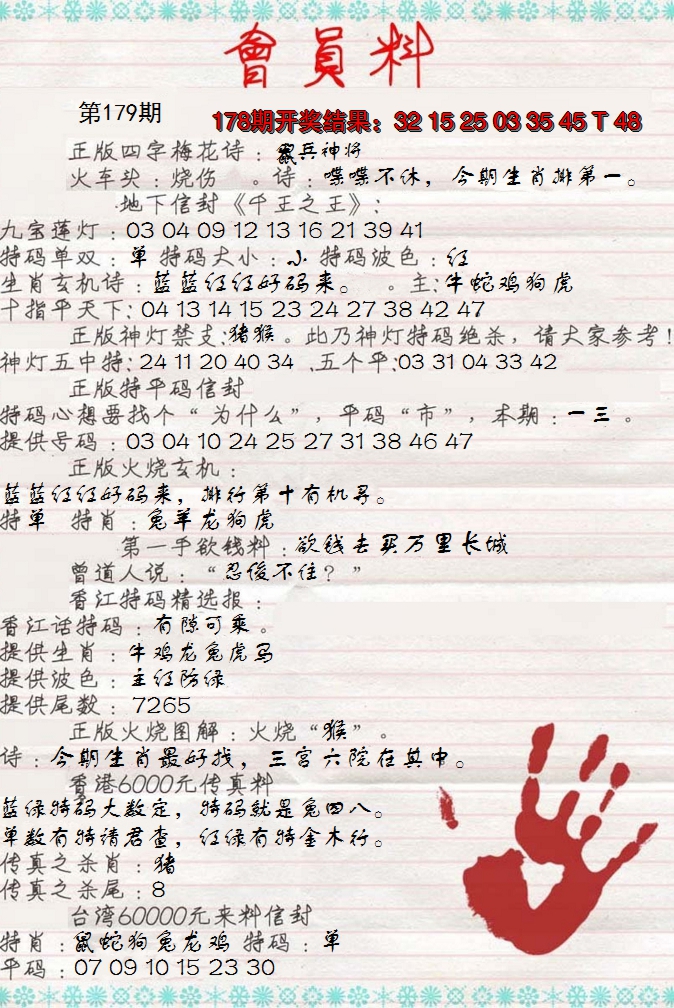 會員料
第179期
178期开奖结果：32 15 25 03 35 45 T 48
正版四字梅花诗：鼠兵神将
火车头：烧伤 。诗：喋喋不休，今期生肖排第一。
·地下信封《千王之王》：
九宝莲灯：03 04 09 12 13 16 21 39 41
特码单双：单 特码大小：小 特码波色：红
生肖玄机诗：蓝蓝红红好码来。 。主：牛蛇鸡狗虎
十指平天下：04 13 14 15 23 24 27 38 42 47
正版神灯禁支：猪猴。此乃神灯特码绝杀，请大家参考！
神灯五中特：24 11 20 40 34 、五个平：03 31 04 33 42
正版特平码信封
特码心想要找个“为什么”，平码“市”，本期：一三。
提供号码：03 04 10 24 25 27 31 38 46 47
正版火烧玄机：
蓝蓝红红好码来，排行第十有机寻。
特单 特肖：兔羊龙狗虎
第一手欲钱料：欲钱去买万里长城
曾道人说：“忍俊不住？”
香江特码精选报：
香江话特码：有隙可乘。
提供生肖：牛鸡龙兔虎马
提供波色：主红防绿
提供尾数：7265
正版火烧图解：火烧“猴”。
诗：今期生肖最好找，三宫六院在其中。
香港6000元传真料
蓝绿特码大数定，特码就是兔四八。
单数有特请君查，红绿有特金木行。
传真之杀肖：猪
传真之杀尾：8
台湾60000元来料信封
特肖：鼠蛇狗兔龙鸡 特码：单
平码：07 09 10 15 23 30